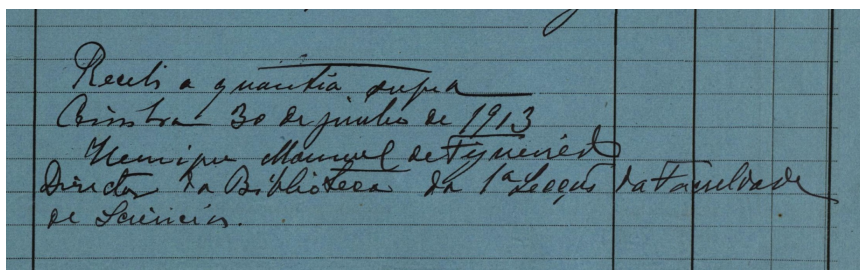 Recebi a quantia supra
Coimbra 30 de junho de 1913
Henrique Manuel de Figueiredo
Director da Bibliotheca da 1ª Secção da Faculdade
de Sciencias.